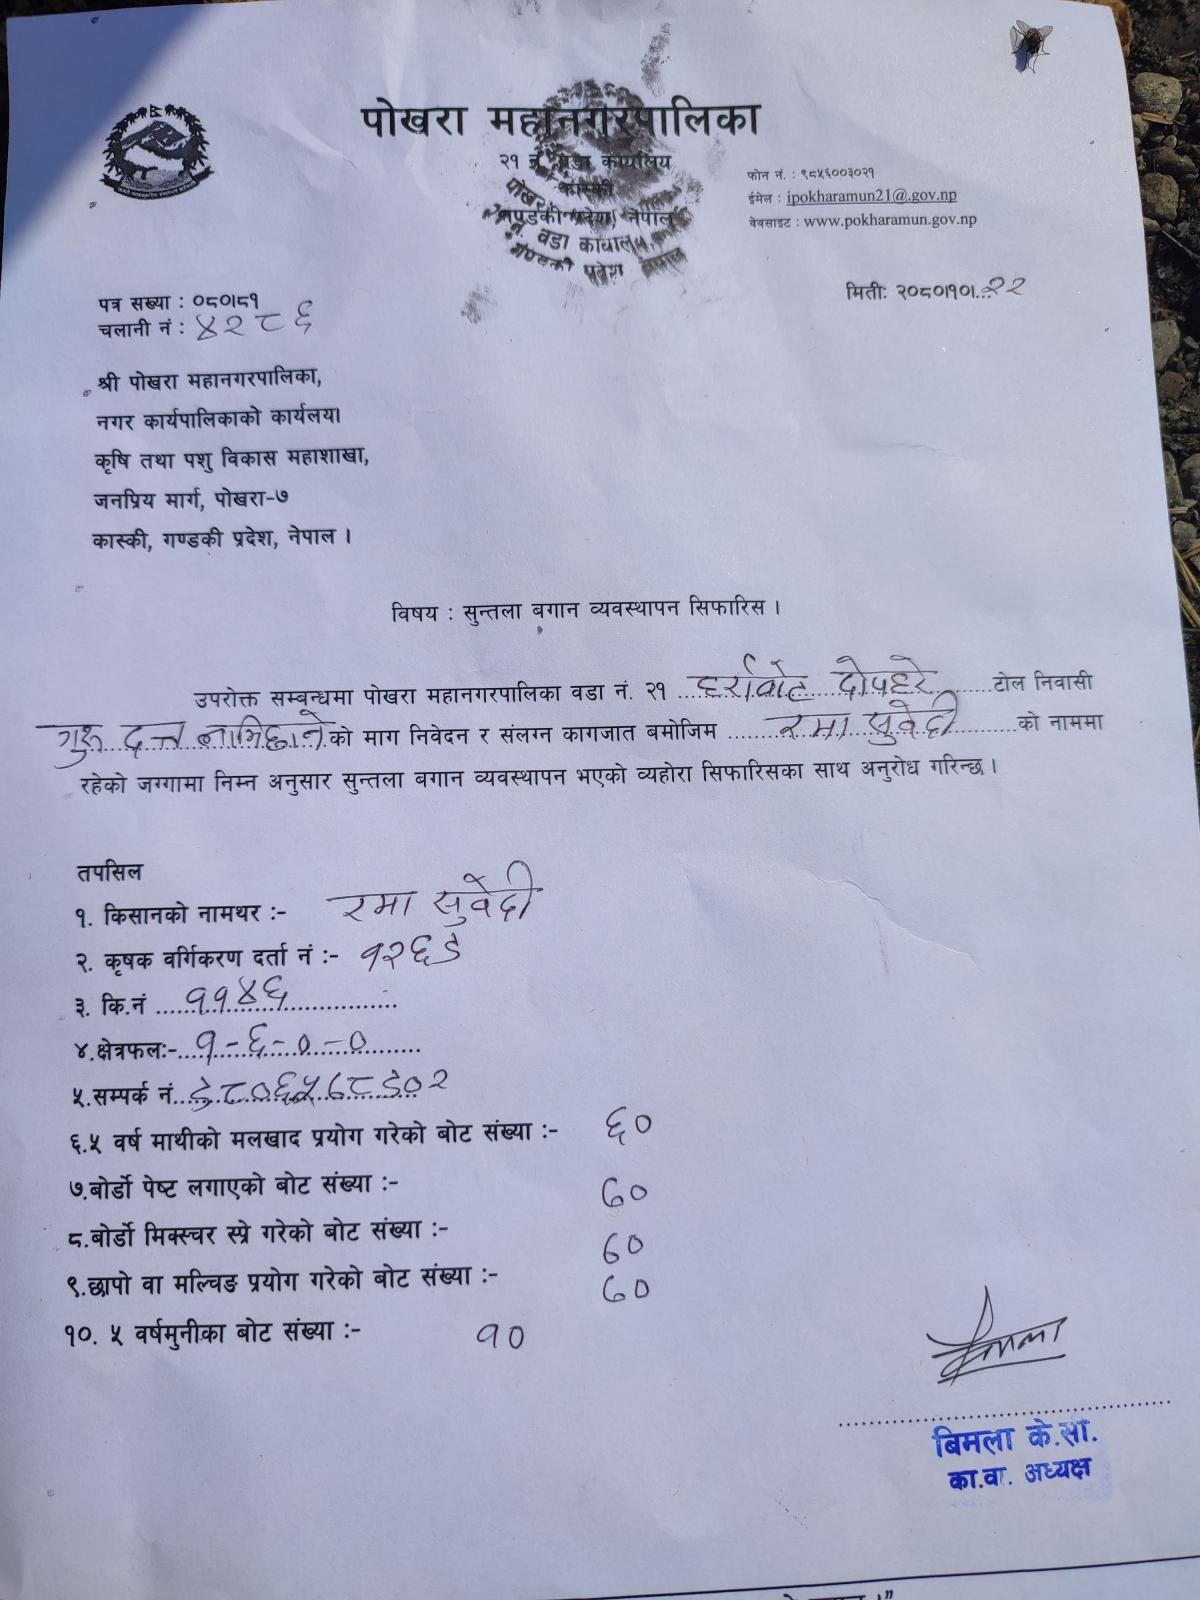 पोखरा महानगरपालिका
२१ नं. वडा कार्यालय
कास्की
गण्डकी प्रदेश, नेपाल
फोन नं. : ९८५६००३०२१
ईमेल : ipokharamun21@.gov.np
वेवसाइट : www.pokharamun.gov.np
पत्र सख्या : ०८०।८१
चलानी नं : ४२८६
मिती: २०८०।१०।...२२
श्री पोखरा महानगरपालिका,
नगर कार्यपालिकाको कार्यलय।
कृषि तथा पशु विकास महाशाखा,
जनप्रिय मार्ग, पोखरा-७
कास्की, गण्डकी प्रदेश, नेपाल ।
विषय : सुन्तला बगान व्यवस्थापन सिफारिस ।
उपरोक्त सम्बन्धमा पोखरा महानगरपालिका वडा नं. २१ ...हर्रावोट दोपहरे......टोल निवासी
गुरु दत्त लामिछाने को माग निवेदन र संलग्न कागजात बमोजिम ......रमा सुवेदी......को नाममा
रहेको जग्गामा निम्न अनुसार सुन्तला बगान व्यवस्थापन भएको व्यहोरा सिफारिसका साथ अनुरोध गरिन्छ ।
तपसिल
१. किसानको नामथर :- रमा सुवेदी
२. कृषक वर्गिकरण दर्ता नं :- १२६९
३. कि.नं ...११४६...
४.क्षेत्रफलः-...१-६-०-०...
५.सम्पर्क नं...९८०६५७८९०२
६.५ वर्ष माथीको मलखाद प्रयोग गरेको बोट संख्या :- ६०
७.बोर्डो पेष्ट लगाएको बोट संख्या :- ६०
८.बोर्डो मिक्स्चर स्प्रे गरेको बोट संख्या :- ६०
९.छापो वा मल्चिङ प्रयोग गरेको बोट संख्या :- ६०
१०. ५ वर्षमुनीका बोट संख्या :- १०
बिमला
बिमला के.सी.
का.वा. अध्यक्ष